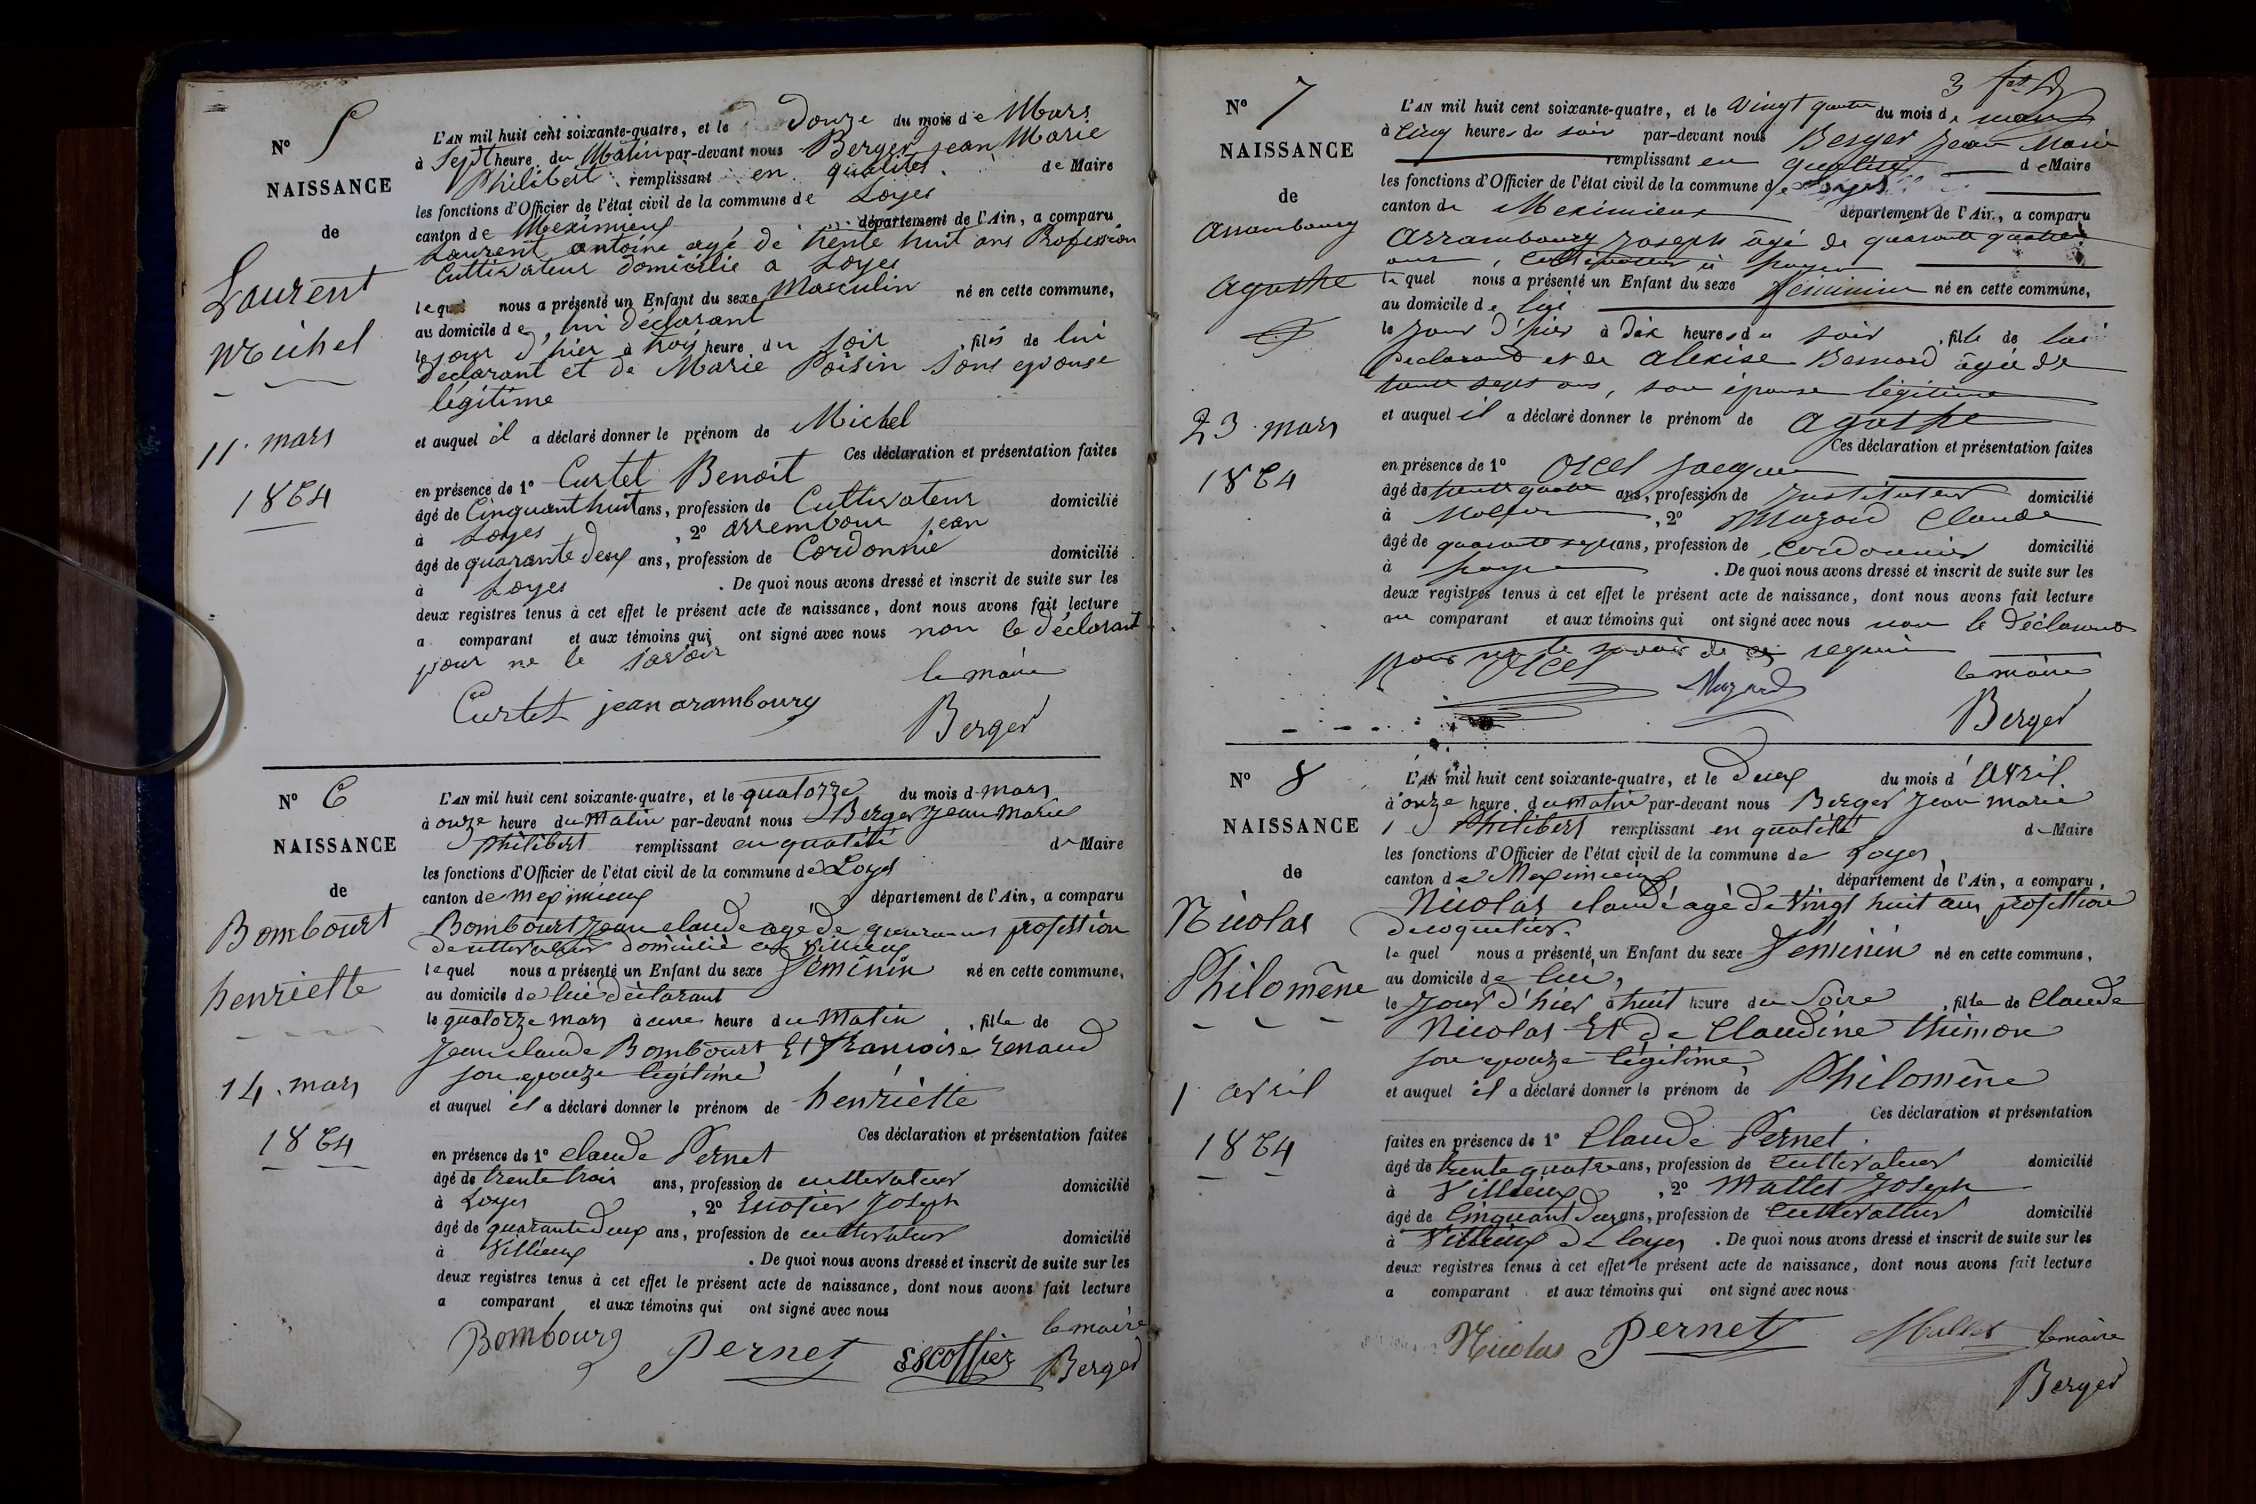 N° 5
NAISSANCE
de
Laurent
Michel
11. mars
1864
L'AN mil huit cent soixante-quatre, et le douze du mois de Mars
à Sept heure du Matin par-devant nous Berger jean Marie
Philibert remplissant en qualités de Maire
les fonctions d'Officier de l'état civil de la commune de Loyes
canton de Meximieux département de l'Ain, a comparu
Laurent antoine agé de trente huit ans Profession
Cultivateur domicilié a Loyes
lequel nous a présenté un Enfant du sexe Masculin né en cette commune,
au domicile de, lui déclarant
le jour d'hier à trois heure du soir, fils de lui
déclarant et de Marie Poisin sons epouse
légitime
et auquel il a déclaré donner le prénom de Michel
Ces déclaration et présentation faites
en présence de 1° Curtet Benoit
âgé de Cinquant huit ans, profession de Cultivateur domicilié
à Loyes, 2° arrembour jean
âgé de quarante deux ans, profession de Cordonnié domicilié
à Loyes. De quoi nous avons dressé et inscrit de suite sur les
deux registres tenus à cet effet le présent acte de naissance, dont nous avons fait lecture
a comparant et aux témoins qui ont signé avec nous non le déclarant
pour ne le savoir
le maire
Curtet jean arambourg
Berger
N° 6
NAISSANCE
de
Bombourt
henriette
14. mars
1864
L'AN mil huit cent soixante-quatre, et le quatorze du mois d mars
à onze heure du Matin par-devant nous Berger Jean Marie
philibert remplissant en qualité d Maire
les fonctions d'Officier de l'état civil de la commune de Loyes
canton de meximieux département de l'Ain, a comparu
Bombourt Jean claude agé de profession
de cultivateur domicilié a villieux
lequel nous a présenté un Enfant du sexe féminin né en cette commune,
au domicile de lui déclarant
le quatorze mars à une heure du Matin, fille de
Jean claude Bombourt Et francoise renaud
son epouze légitime
et auquel il a déclaré donner le prénom de henriette
Ces déclaration et présentation faites
en présence de 1° claude Pernet
âgé de trente trois ans, profession de cultivateur domicilié
à Loyes, 2° Escofier Joseph
âgé de quarante deux ans, profession de cultivateur domicilié
à Villieux. De quoi nous avons dressé et inscrit de suite sur les
deux registres tenus à cet effet le présent acte de naissance, dont nous avons fait lecture
a comparant et aux témoins qui ont signé avec nous
le maire
Bombourg Pernet Escoffier Berger
3
N° 7
NAISSANCE
de
Arrambourg
agathe
23. mars
1864
L'AN mil huit cent soixante-quatre, et le vingt quatre du mois de mars
à cinq heures du soir par-devant nous Berger Jean Marie
remplissant en qualité de Maire
les fonctions d'Officier de l'état civil de la commune de Loyes
canton de Meximieux département de l'Ain, a comparu
Arrambourg Joseph âgé de quarante quatre
ans, cultivateur à Loyes
le quel nous a présenté un Enfant du sexe féminin né en cette commune,
au domicile de lui
le jour d'hier à dix heures du soir, fille de lui
déclarant et de alexise Bernard âgée de
trente sept ans, son épouse légitime
et auquel il a déclaré donner le prénom de agathe
Ces déclaration et présentation faites
en présence de 1° Orcel Jacques
âgé de trente quatre ans, profession de Instituteur domicilié
à, 2° Mazard Claude
âgé de quarante sept ans, profession de cordonnier domicilié
à Loyes. De quoi nous avons dressé et inscrit de suite sur les
deux registres tenus à cet effet le présent acte de naissance, dont nous avons fait lecture
au comparant et aux témoins qui ont signé avec nous non le déclarant
pour ne le savoir de ce requis
Orcel Mazard le maire
Berger
N° 8
NAISSANCE
de
Nicolas
Philomène
1 avril
1864
L'AN mil huit cent soixante-quatre, et le deux du mois d'avril
à onze heure du matin par-devant nous Berger Jean marie
Philibert remplissant en qualité d Maire
les fonctions d'Officier de l'état civil de la commune de Loyes
canton de Meximieux département de l'Ain, a comparu,
Nicolas claude agé de vingt huit ans profession
de coquetier
le quel nous a présenté un Enfant du sexe féminin né en cette commune,
au domicile de lui,
le jour d'hier à huit heure du soire, fille de Claude
Nicolas Et de Claudine thimon
son epouze légitime
et auquel il a déclaré donner le prénom de Philomène
Ces déclaration et présentation
faites en présence de 1° Claude Pernet.
âgé de trente quatre ans, profession de cultivateur domicilié
à Villieux, 2° Mallet Joseph
âgé de Cinquant deux ans, profession de cultivateur domicilié
à Villieux de loyes. De quoi nous avons dressé et inscrit de suite sur les
deux registres tenus à cet effet le présent acte de naissance, dont nous avons fait lecture
a comparant et aux témoins qui ont signé avec nous
Nicolas Pernet Mallet le maire
Berger